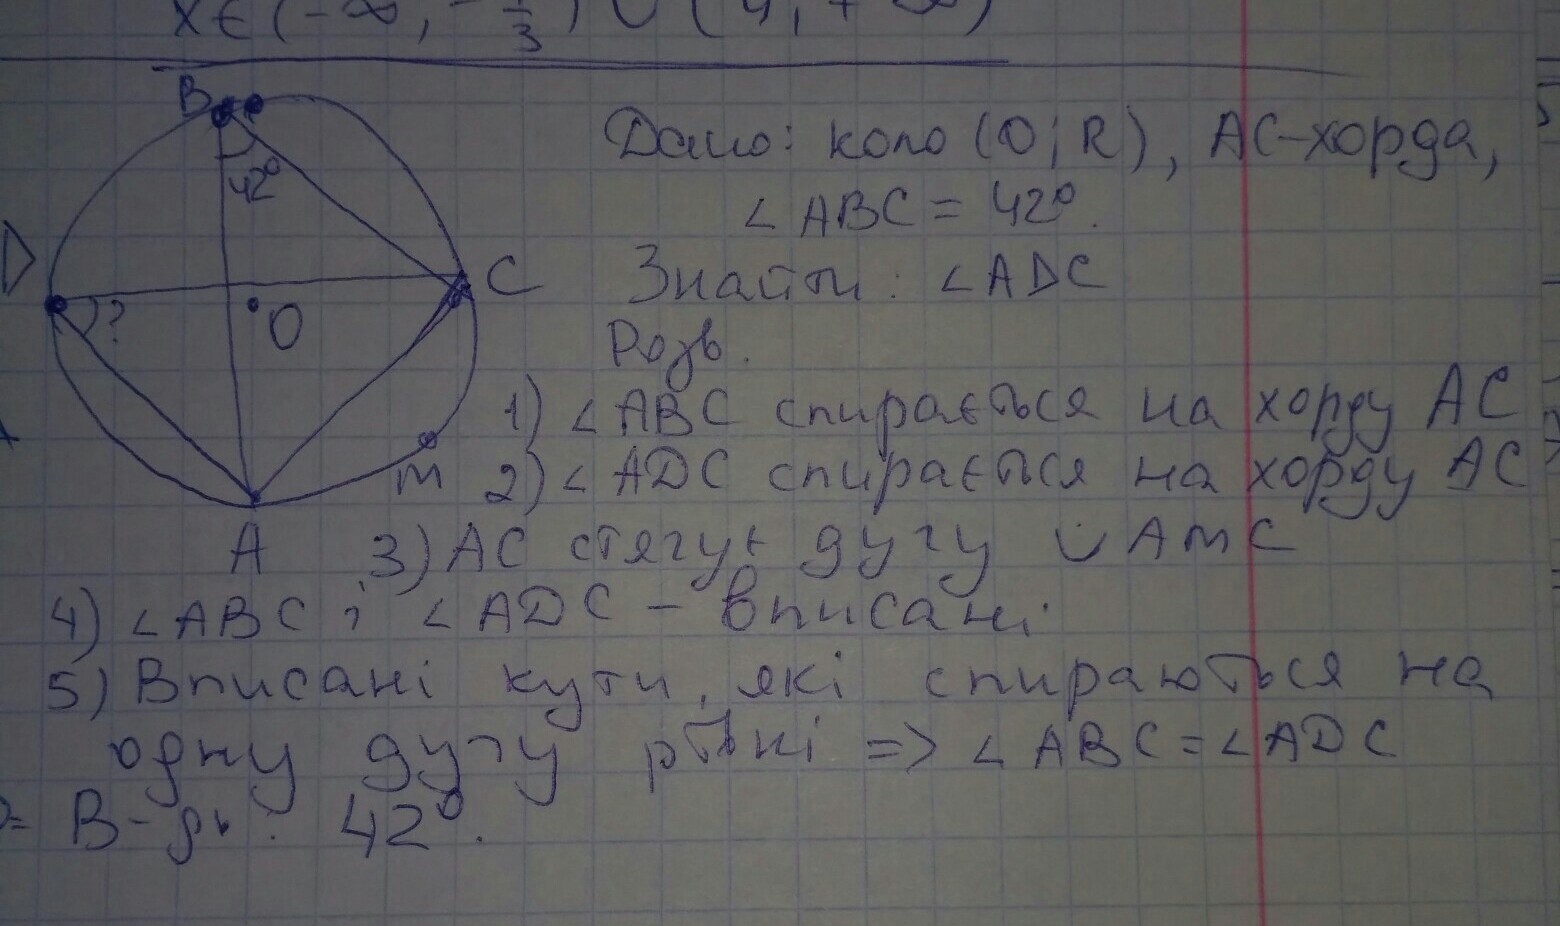 x∈(-∞, -1/3) ∪ (4, +∞)
B
42°
D
C
?
O
M
A
Дано: коло (O; R), AC-хорда,
∠ABC = 42°.
Знайти: ∠ADC
Розв.
1) ∠ABC спирається на хорду AC
2) ∠ADC спирається на хорду AC
3) AC стягує дугу ∪AMC
4) ∠ABC і ∠ADC - вписані
5) Вписані кути, які спираються на
одну дугу рівні => ∠ABC = ∠ADC
В-дь: 42°.